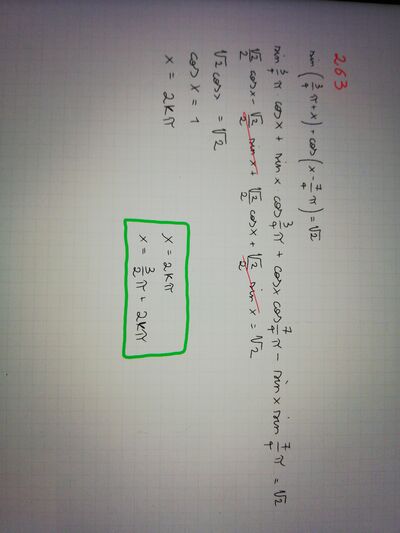 263
sin(3/4 π + x) + cos(x - 7/4 π) = √2
sin 3/4 π cos x + sin x cos 3/4 π + cos x cos 7/4 π - sin x sin 7/4 π = √2
√2/2 cos x - √2/2 sin x + √2/2 cos x + √2/2 sin x = √2
√2 cos x = √2
cos x = 1
x = 2kπ
x = 2kπ
x = 3/2 π + 2kπ